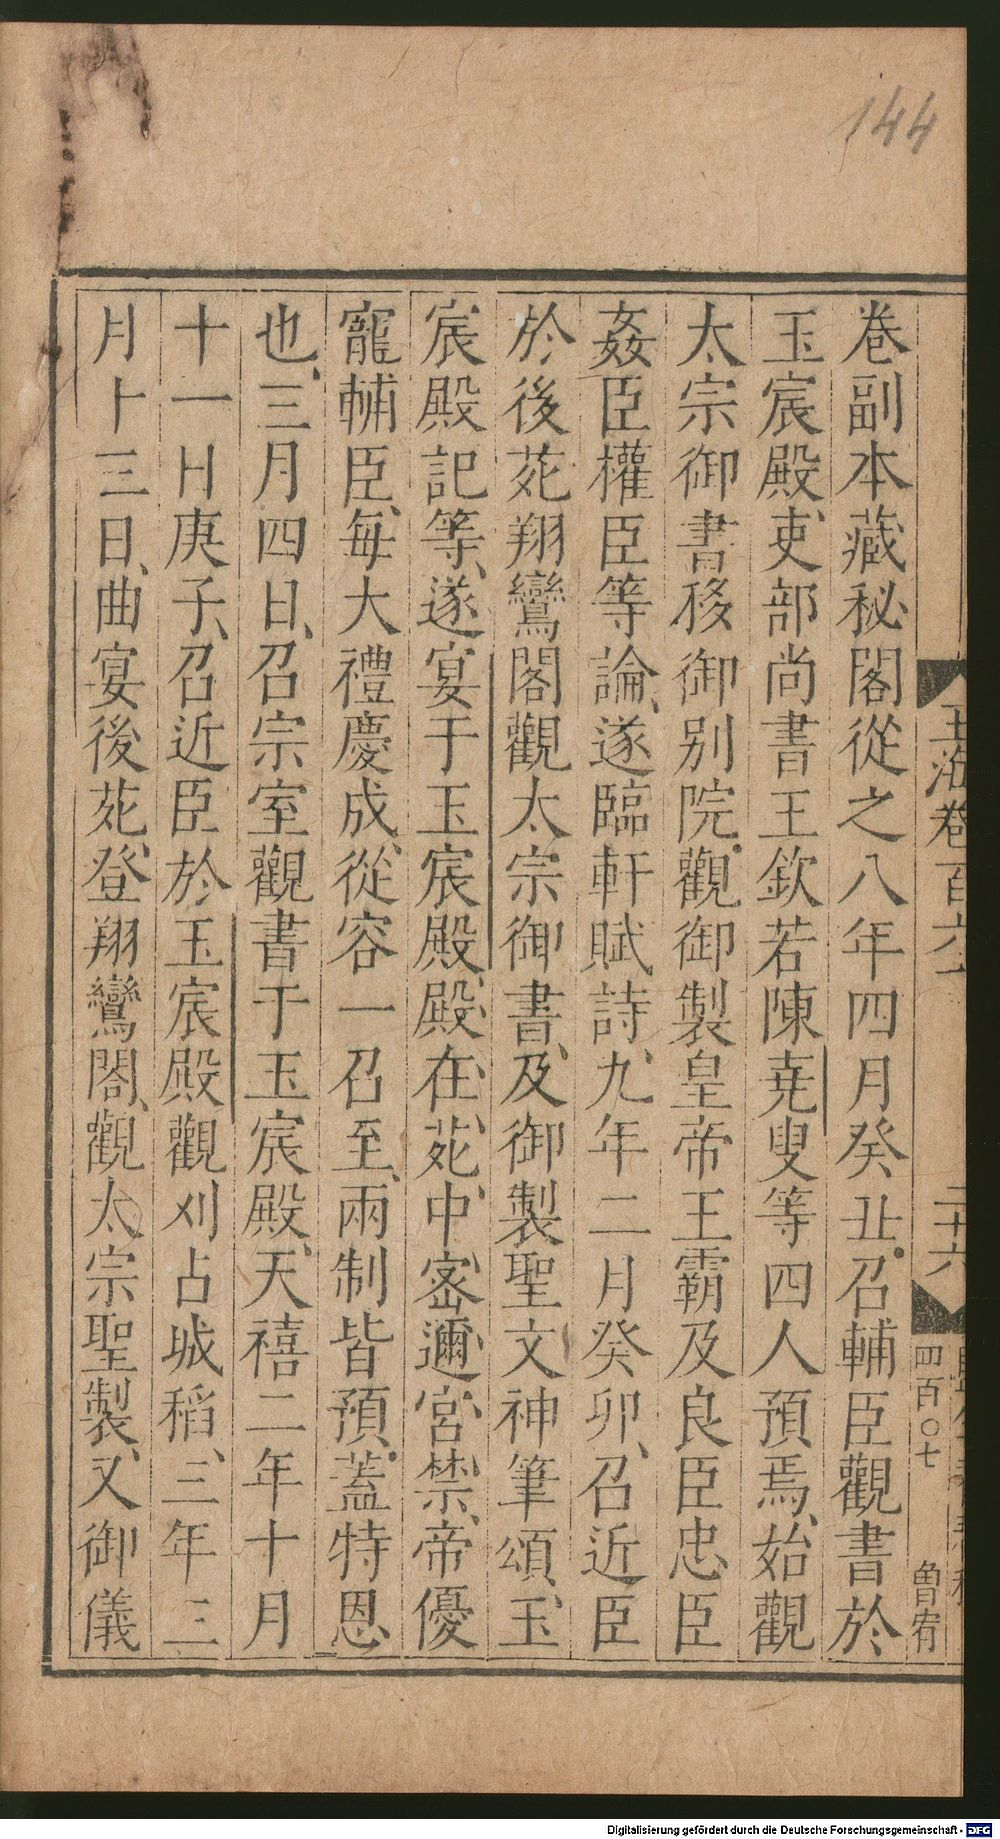 144
玉海卷百六
二十六
四百〇七
魯宥
卷副本藏秘閣從之八年四月癸丑召輔臣觀書於
玉宸殿吏部尚書王欽若陳堯叟等四人預焉始觀
太宗御書移御別院觀御製皇帝王霸及良臣忠臣
姦臣權臣等論遂臨軒賦詩九年二月癸卯召近臣
於後苑翔鸞閣觀太宗御書及御製聖文神筆頌玉
宸殿記等遂宴于玉宸殿殿在苑中密邇宮禁帝優
寵輔臣每大禮慶成從容一召至兩制皆預蓋特恩
也三月四日召宗室觀書于玉宸殿天禧二年十月
十一日庚子召近臣於玉宸殿觀刈占城稻三年三
月十三日曲宴後苑登翔鸞閣觀太宗聖製又御儀
Digitalisierung gefördert durch die Deutsche Forschungsgemeinschaft - DFG